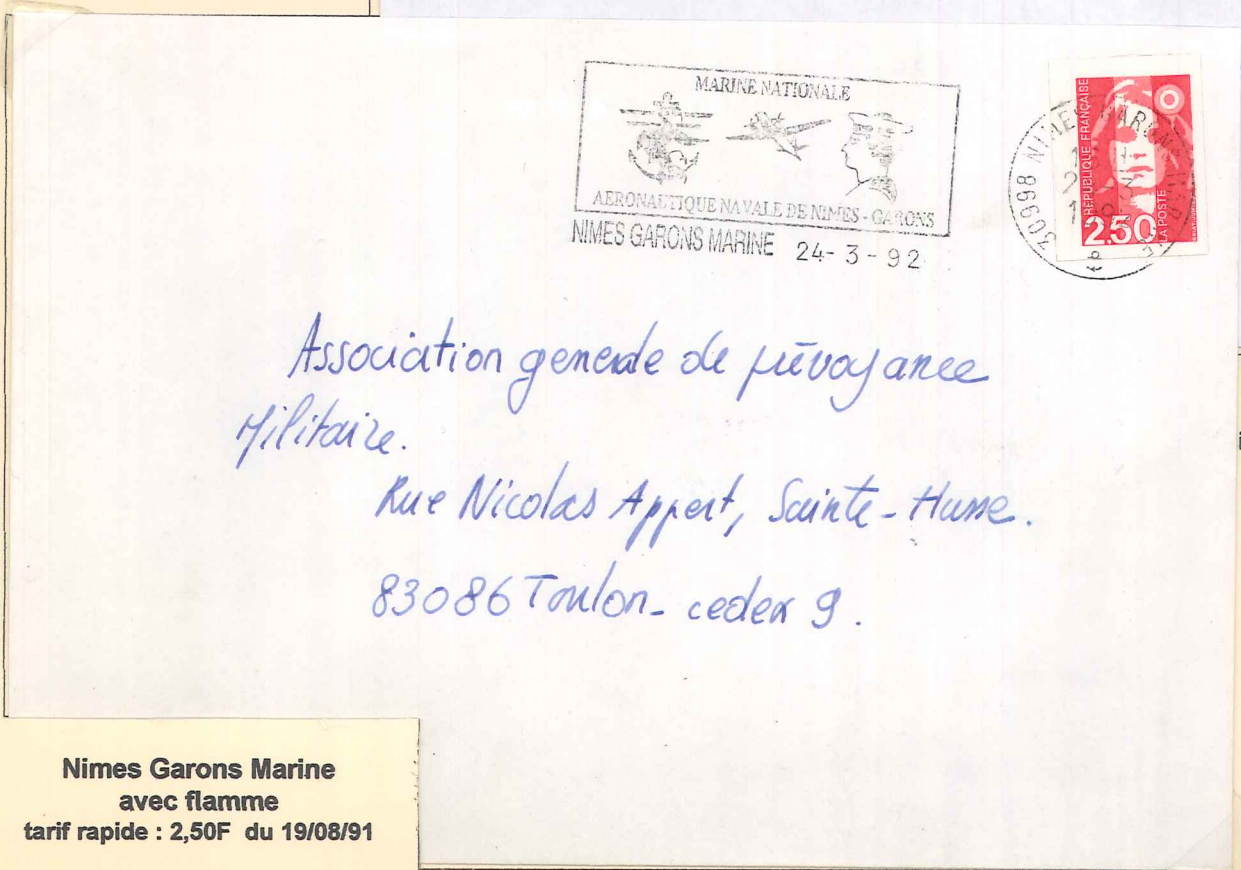 MARINE NATIONALE
AERONAUTIQUE NAVALE DE NIMES - GARONS
NIMES GARONS MARINE 24-3-92
30998 NIMES GARONS
REPUBLIQUE FRANÇAISE
2,50
LA POSTE
Association generale de prévoyance
Militaire.
Rue Nicolas Appert, Sainte-Musse.
83086 Toulon- cedex 9.
Nimes Garons Marine
avec flamme
tarif rapide : 2,50F du 19/08/91